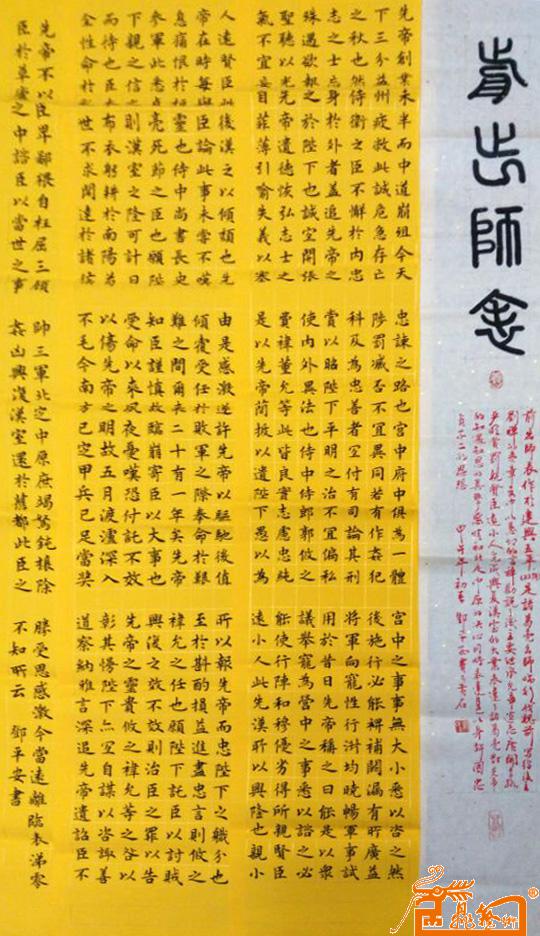 前出師表
先帝創業未半而中道崩殂今天
下三分益州疲敝此誠危急存亡
之秋也然侍衛之臣不懈於内忠
志之士忘身於外者盖追先帝之
殊遇欲報之於陛下也誠宜開張
聖聽以光先帝遺德恢弘志士之
氣不宜妄自菲薄引喻失義以塞
忠諫之路也宫中府中俱為一體
陟罰臧否不宜異同若有作姦犯
科及為忠善者宜付有司論其刑
賞以昭陛下平明之治不宜偏私
使内外異法也侍中侍郎郭攸之
費禕董允等此皆良實志慮忠純
是以先帝簡拔以遺陛下愚以為
宫中之事事無大小悉以咨之然
後施行必能裨補闕漏有所廣益
將軍向寵性行淑均曉暢軍事試
用於昔日先帝稱之曰能是以衆
議舉寵為營中之事悉以諮之必
能使行陣和穆優劣得所親賢臣
遠小人此先漢所以興隆也親小
人遠賢臣此後漢之以傾頹也先
帝在時每與臣論此事未嘗不嘆
息痛恨於桓靈也侍中尚書長史
參軍此悉貞亮死節之臣也願陛
下親之信之則漢室之隆可計日
而待也臣本布衣躬耕於南陽苟
全性命於亂世不求聞達於諸侯
先帝不以臣卑鄙猥自枉屈三顧
臣於草廬之中諮臣以當世之事
由是感激遂許先帝以驅馳後值
傾覆受任於敗軍之際奉命於艱
難之間爾来二十有一年矣先帝
知臣謹慎故臨崩寄臣以大事也
受命以来夙夜憂嘆恐付託不效
以傷先帝之明故五月渡瀘深入
不毛今南方已定甲兵已足當獎
帥三軍北定中原庶竭駑鈍攘除
姦凶興復漢室還於舊都此臣之
所以報先帝而忠陛下之職分也
至於斟酌損益進盡忠言則攸之
禕允之任也願陛下託臣以討賊
興復之效不效則治臣之罪以告
先帝之靈責攸之禕允等之咎以
彰其慢陛下亦宜自謀以咨諏善
道察納雅言深追先帝遺詔臣不
勝受恩感激今當遠離臨表涕零
不知所云 鄧平安書